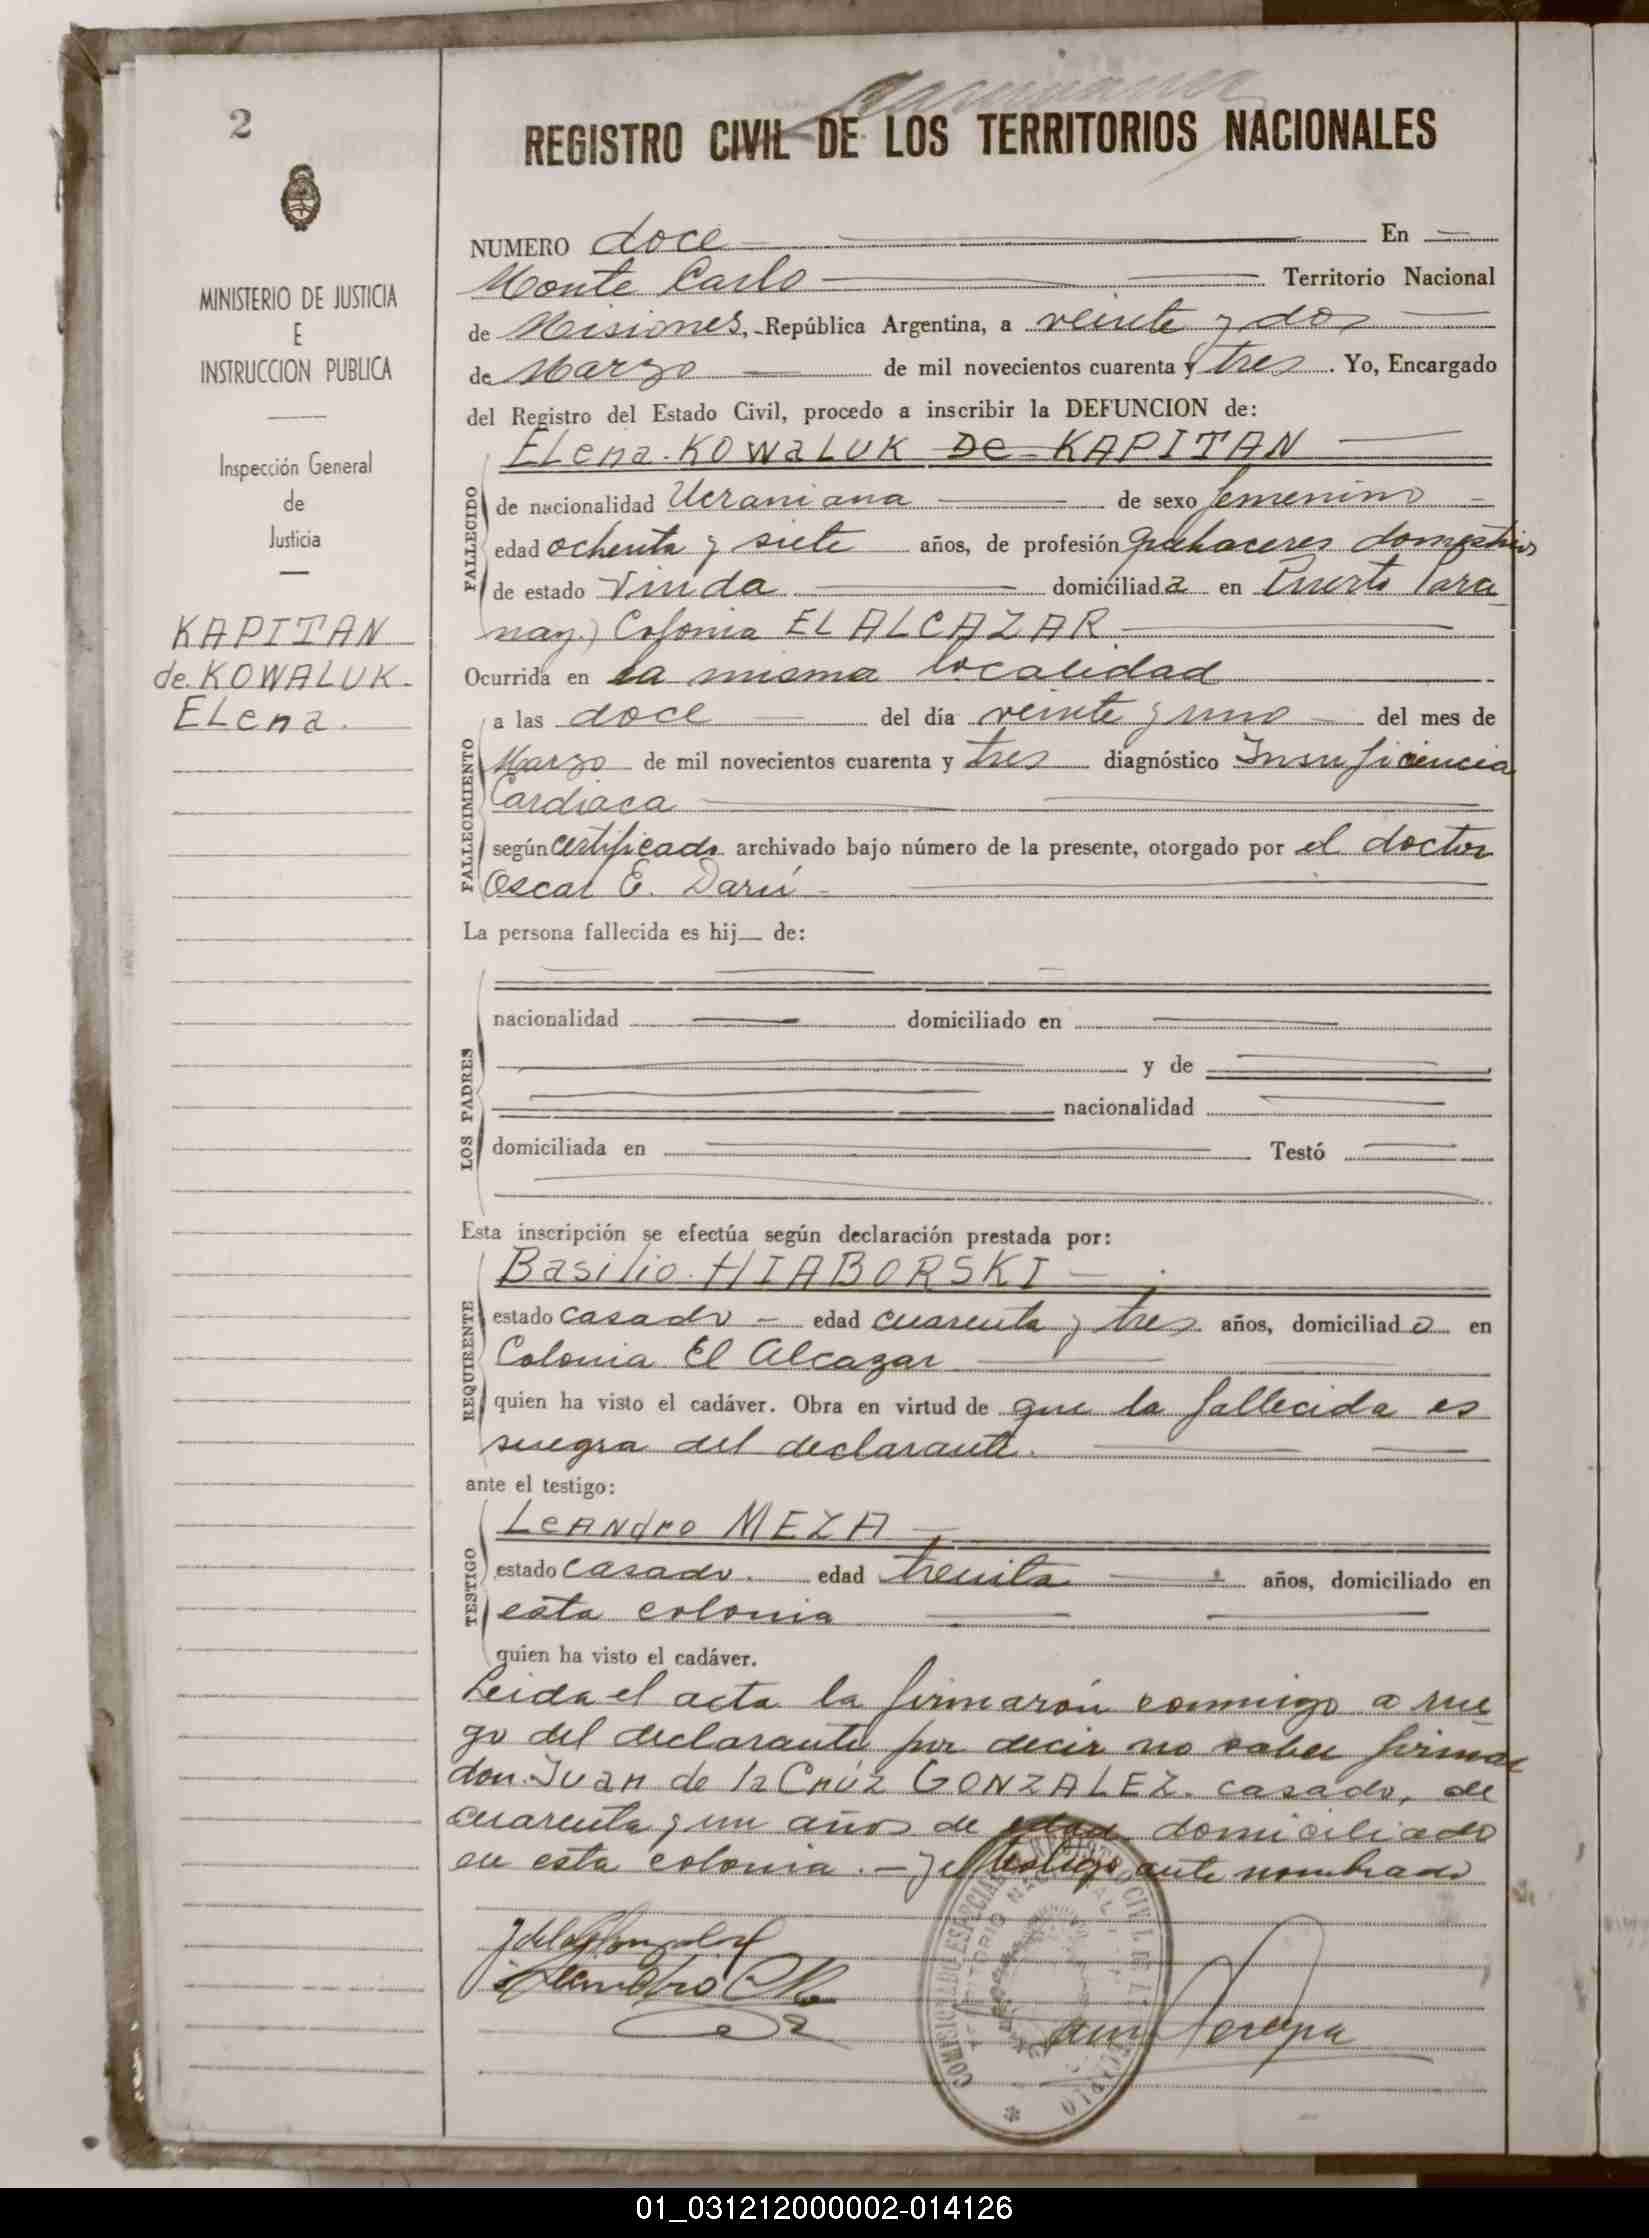 2
REGISTRO CIVIL DE LOS TERRITORIOS NACIONALES
MINISTERIO DE JUSTICIA
E
INSTRUCCION PUBLICA
Inspección General
de
Justicia
KAPITAN
de KOWALUK.
ELena.
NUMERO doce En
Monte Carlo Territorio Nacional
de Misiones, República Argentina, a veinte y dos
de Marzo de mil novecientos cuarenta y tres. Yo, Encargado
del Registro del Estado Civil, procedo a inscribir la DEFUNCION de:
ELena KOWaLUK De KAPITAN
FALLECIDO
de nacionalidad Ucraniana de sexo femenino
edad ochenta y siete años, de profesión quehaceres domesticos
de estado Viuda domiciliada en Puerto Para
nay.) Colonia EL ALCAZAR
Ocurrida en la misma localidad
FALLECIMIENTO
a las doce del día veinte y uno del mes de
Marzo de mil novecientos cuarenta y tres diagnóstico Insuficiencia
Cardiaca
según certificado archivado bajo número de la presente, otorgado por el doctor
Oscar E. Darú
La persona fallecida es hij__ de:
LOS PADRES
nacionalidad domiciliado en
y de
nacionalidad
domiciliada en Testó
Esta inscripción se efectúa según declaración prestada por:
Basilio HIABORSKI
REQUIREENTE
estado casado edad cuarenta y tres años, domiciliado en
Colonia El Alcazar
quien ha visto el cadáver. Obra en virtud de que la fallecida es
suegra del declarante.
ante el testigo:
LeANdro MEZA
TESTIGO
estado casado. edad treinta años, domiciliado en
esta colonia
quien ha visto el cadáver.
Leida el acta la firmarón conmigo a rue
go del declarante por decir no saber firmar
don Juan de la Cruz GONZALEZ. casado, de
cuarenta y un años de edad domiciliado
en esta colonia. — y el testigo ante nombrado
REGISTRO CIVIL
01_031212000002-014126